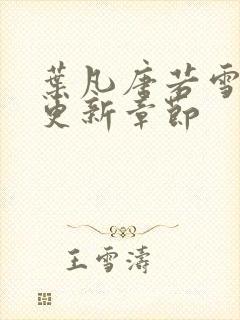 葉凡唐若雪
更新章節
王雪濤